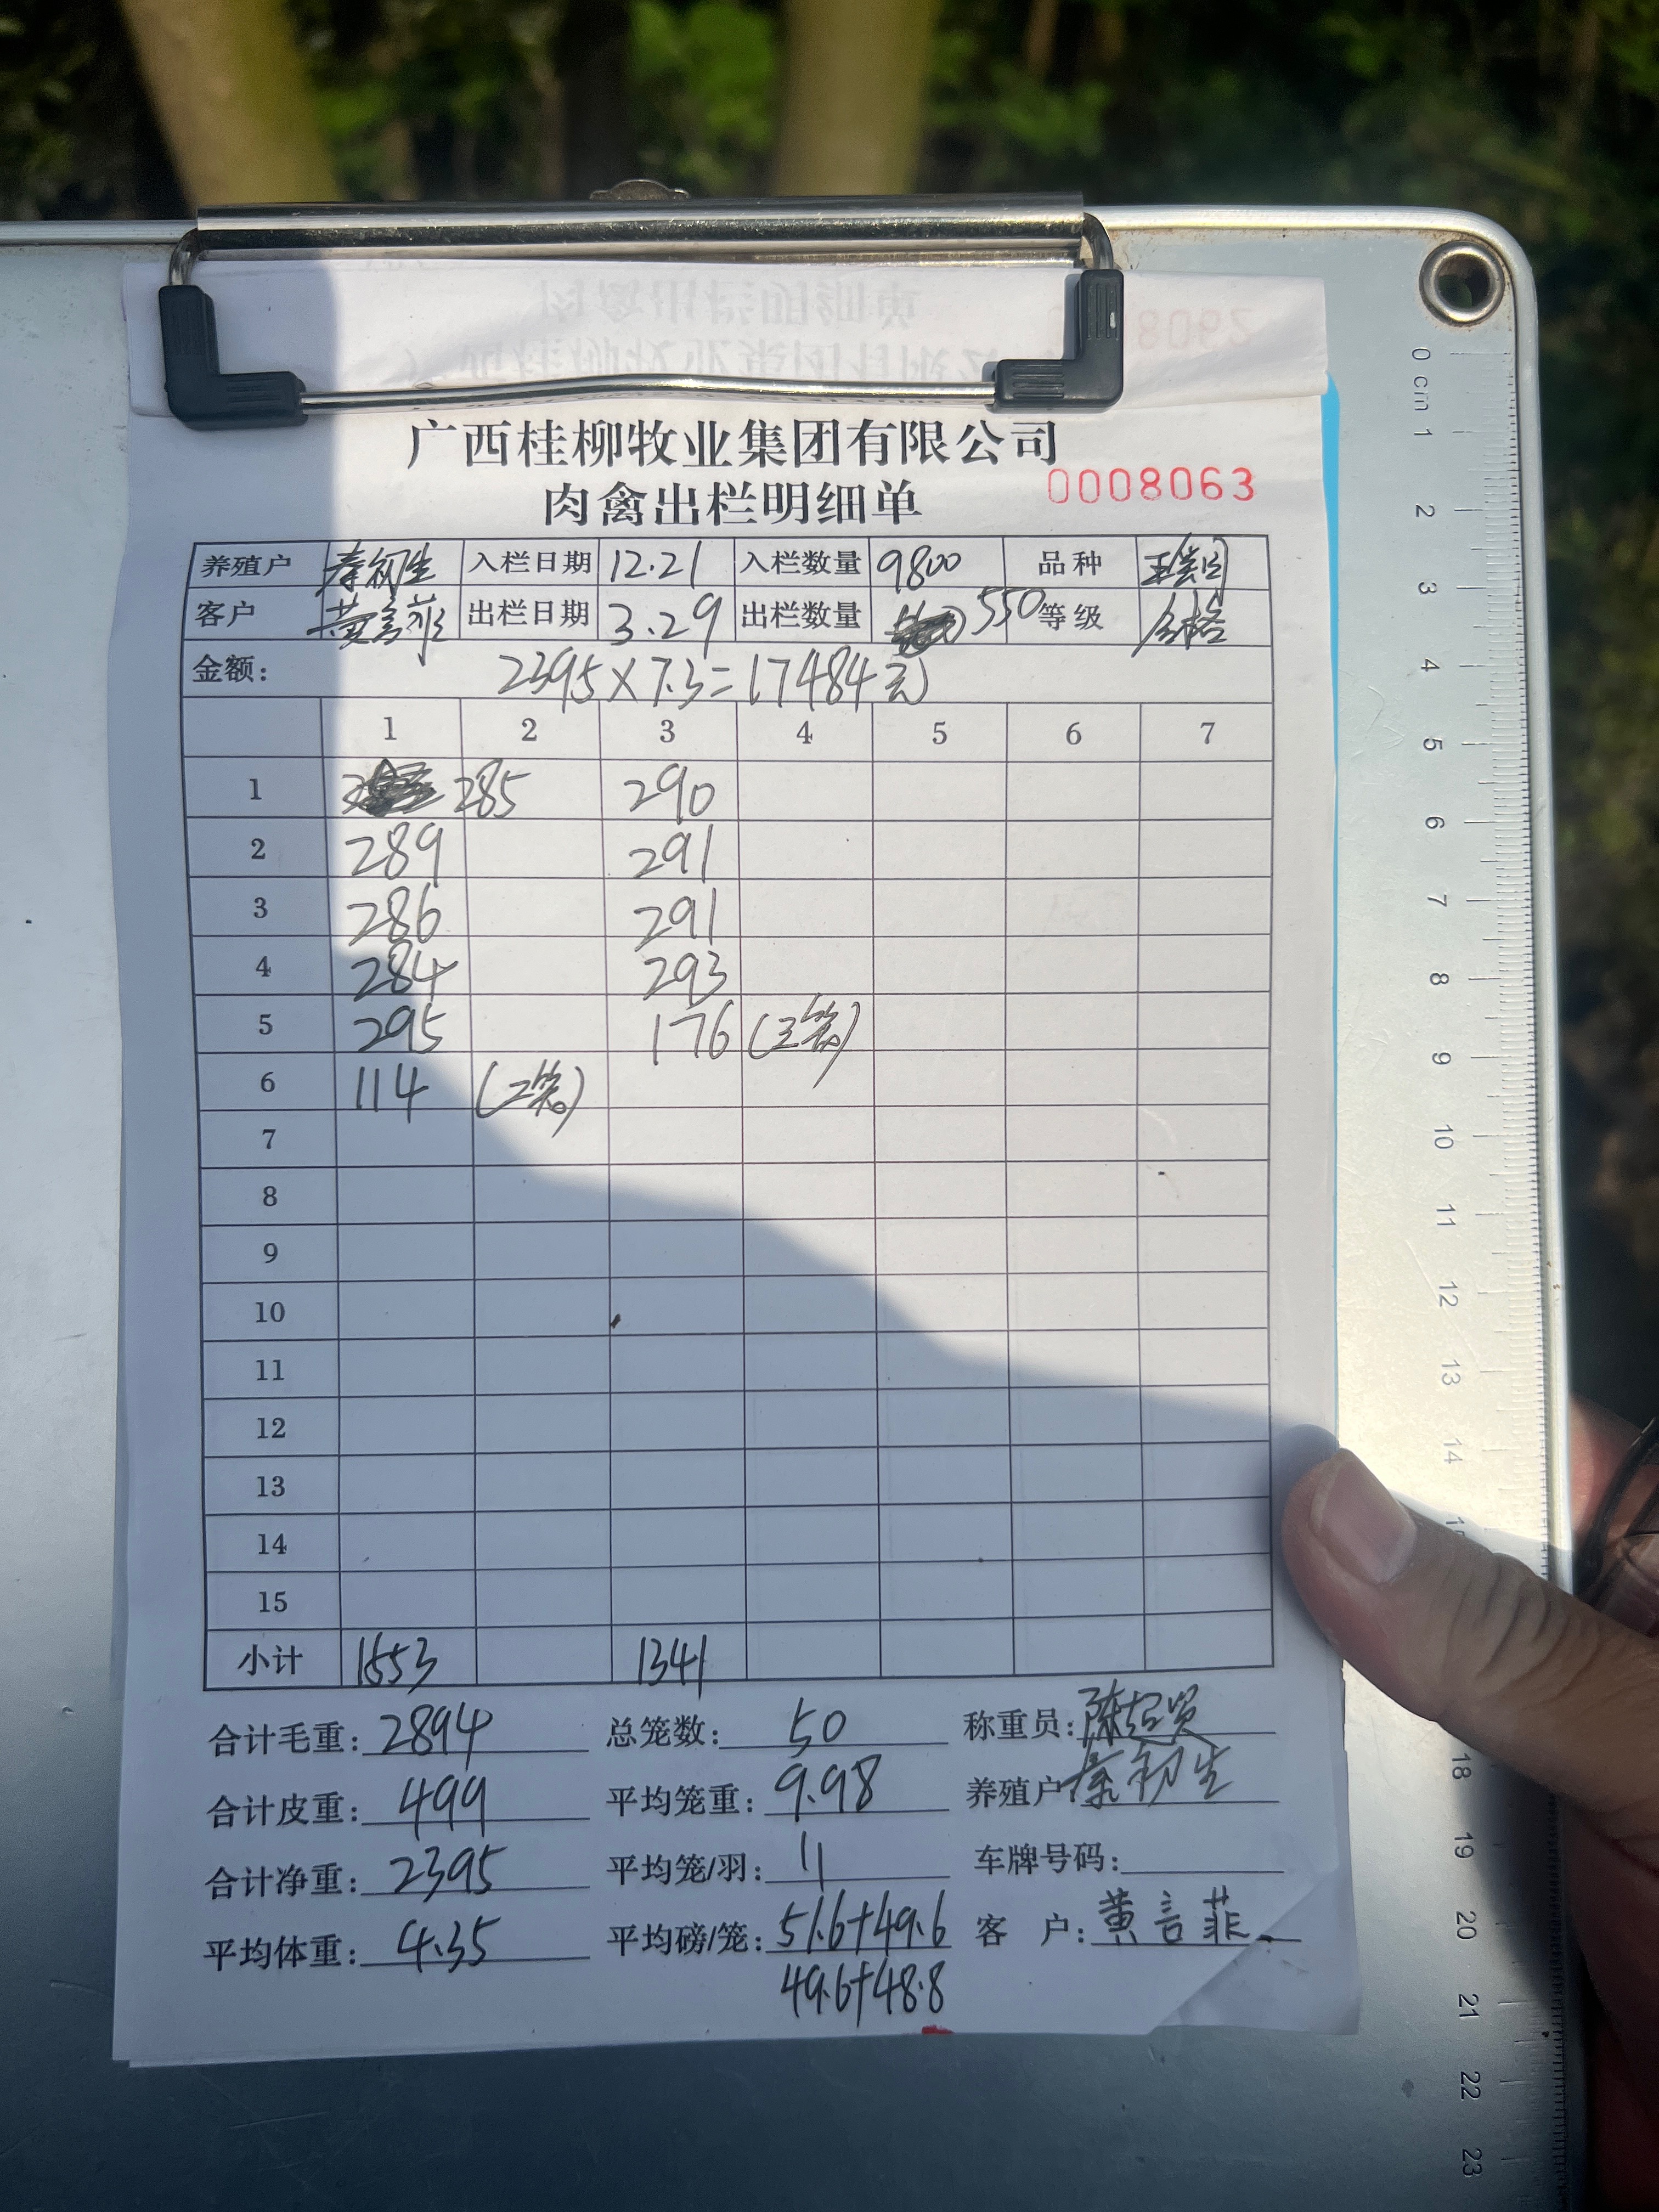 广西桂柳牧业集团有限公司
肉禽出栏明细单 0008063
养殖户 秦初生 入栏日期 12.21 入栏数量 9800 品种
客户 黄言菲 出栏日期 3.29 出栏数量 550 等级 合格
金额: 2395×7.3=17484元
1 2 3 4 5 6 7
1 285 290
2 289 291
3 286 291
4 284 293
5 295 176 (三笼)
6 114 (二笼)
7
8
9
10
11
12
13
14
15
小计 1553 1341
合计毛重: 2894 总笼数: 50 称重员:
合计皮重: 499 平均笼重: 9.98 养殖户 秦初生
合计净重: 2395 平均笼/羽: 11 车牌号码:
平均体重: 4.35 平均磅/笼: 51.6+49.6 客 户: 黄言菲
49.6+48.8
0 cm 1 2 3 4 5 6 7 8 9 10 11 12 13 14 18 19 20 21 22 23